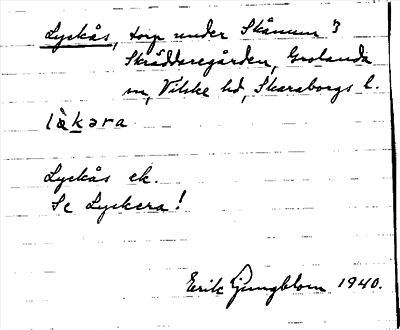 Lyckås, torp under Skånum 3
Skräddaregården, Grolanda
sn, Vilske hd, Skaraborgs l.
là̱kəra
Lyckås ek.
Se Lyckera!
Erik Ljungblom 1940.